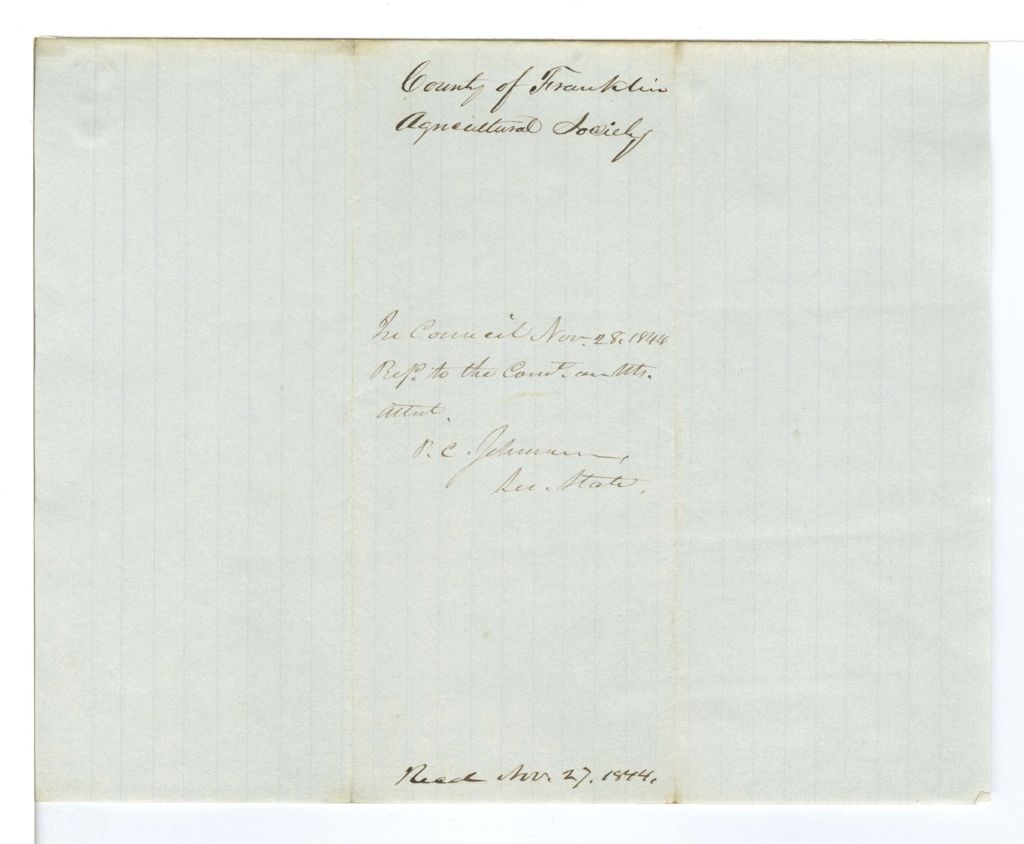 County of Franklin
Agricultural Society
In Council Nov. 28, 1844
Refd. to the Comt. on Wts.
Attest.
P. C. Johnson,
Sec. State.
Recd Nov. 27, 1844.